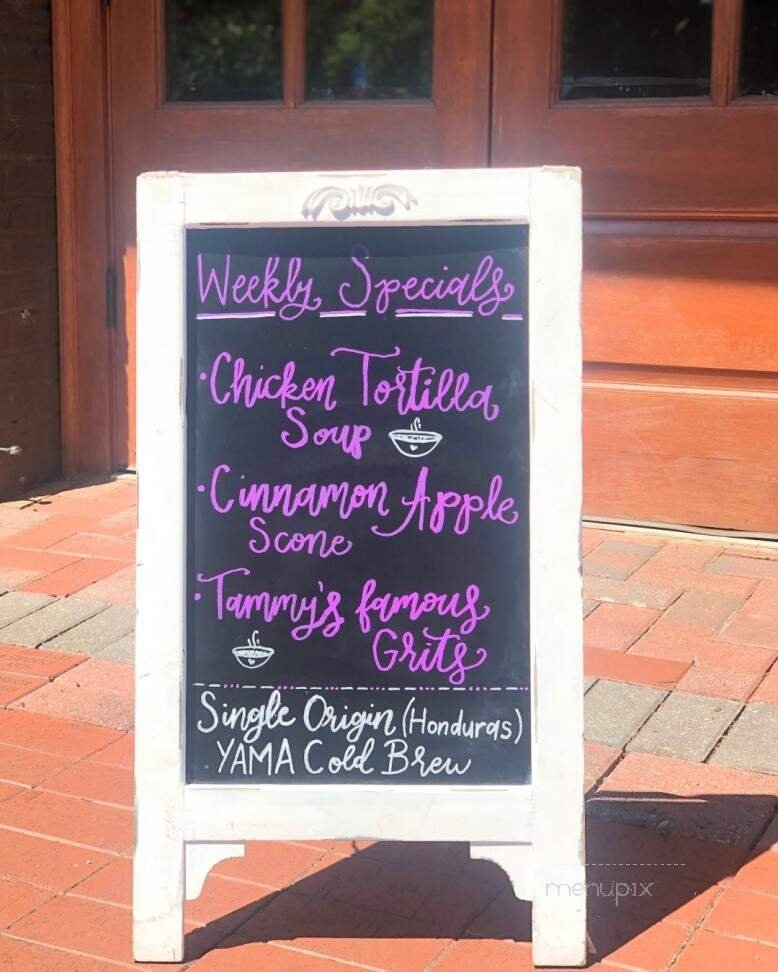 Weekly Specials
• Chicken Tortilla
Soup
• Cinnamon Apple
Scone
• Tammy's famous
Grits
Single Origin (Honduras)
YAMA Cold Brew
menupix